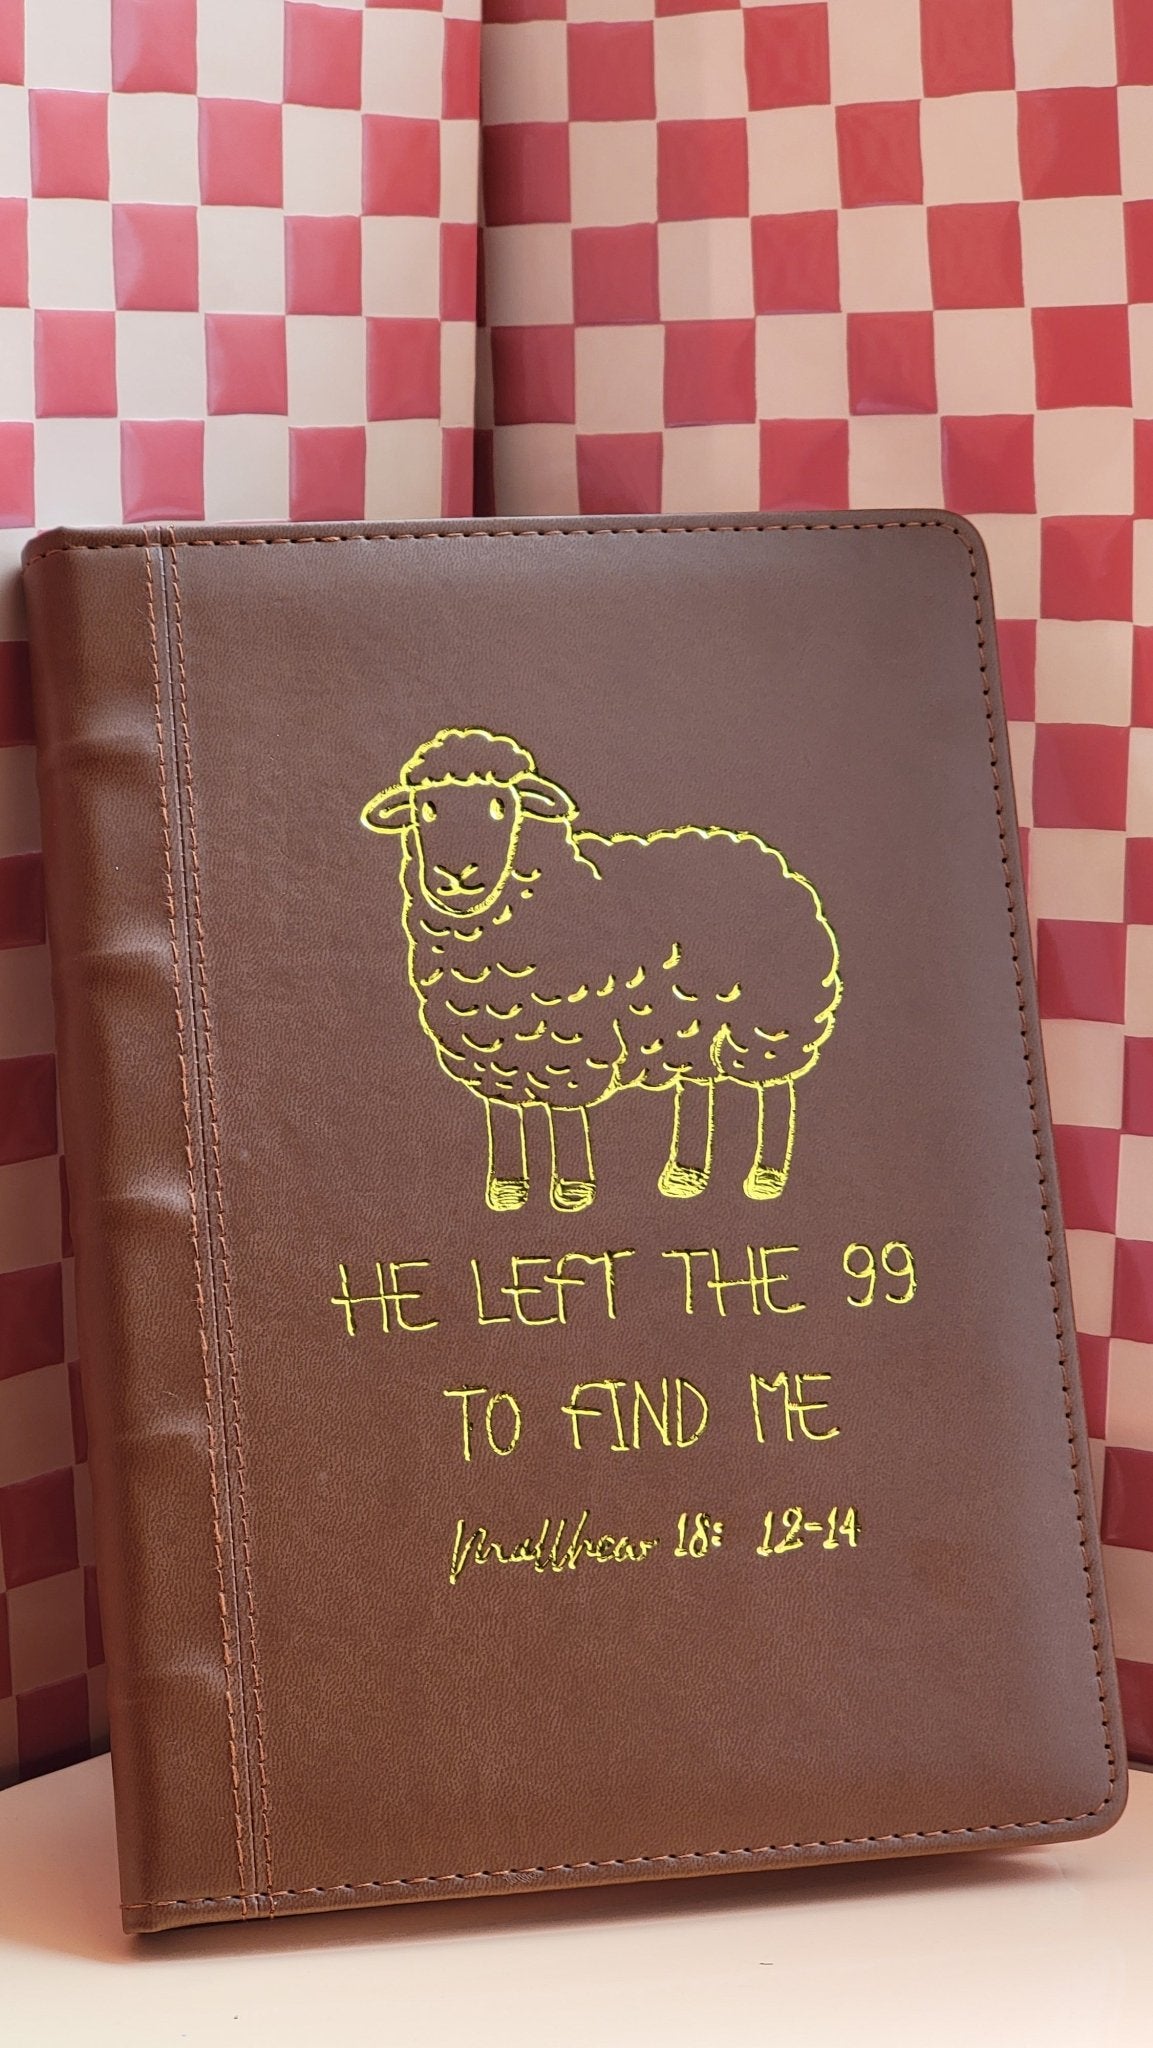 HE LEFT THE 99
TO FIND ME
Matthew 18: 12-14